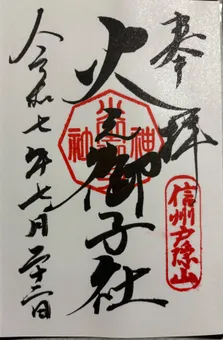 奉拝
火之御子社
信州戸隠山
令和七年七月二十二日